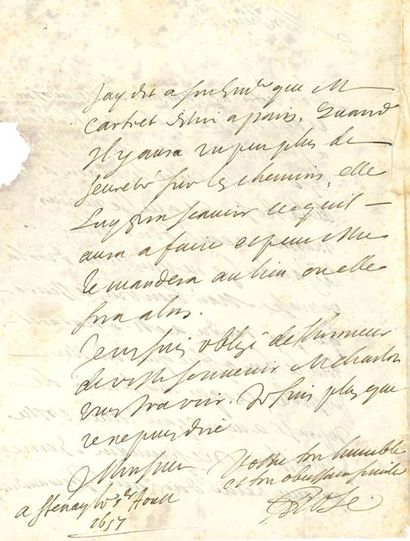 Jay dit a son Em.ce que M
cartret estoit a paris. Quand
Il y aura un peu plus de
seureté sur les chemins, elle
luy fera scavoir ce qu'il
aura a faire et peut estre
le mandera au lieu ou elle
sera alors.
Je vous suis obligé de l'honneur
de vostre souvenir M charlon
Je suis plus que
je ne puis dire
Monsieur
Vostre tres humble
et tres obeissant servite
a Stenay le Aoust
1657
Rose.